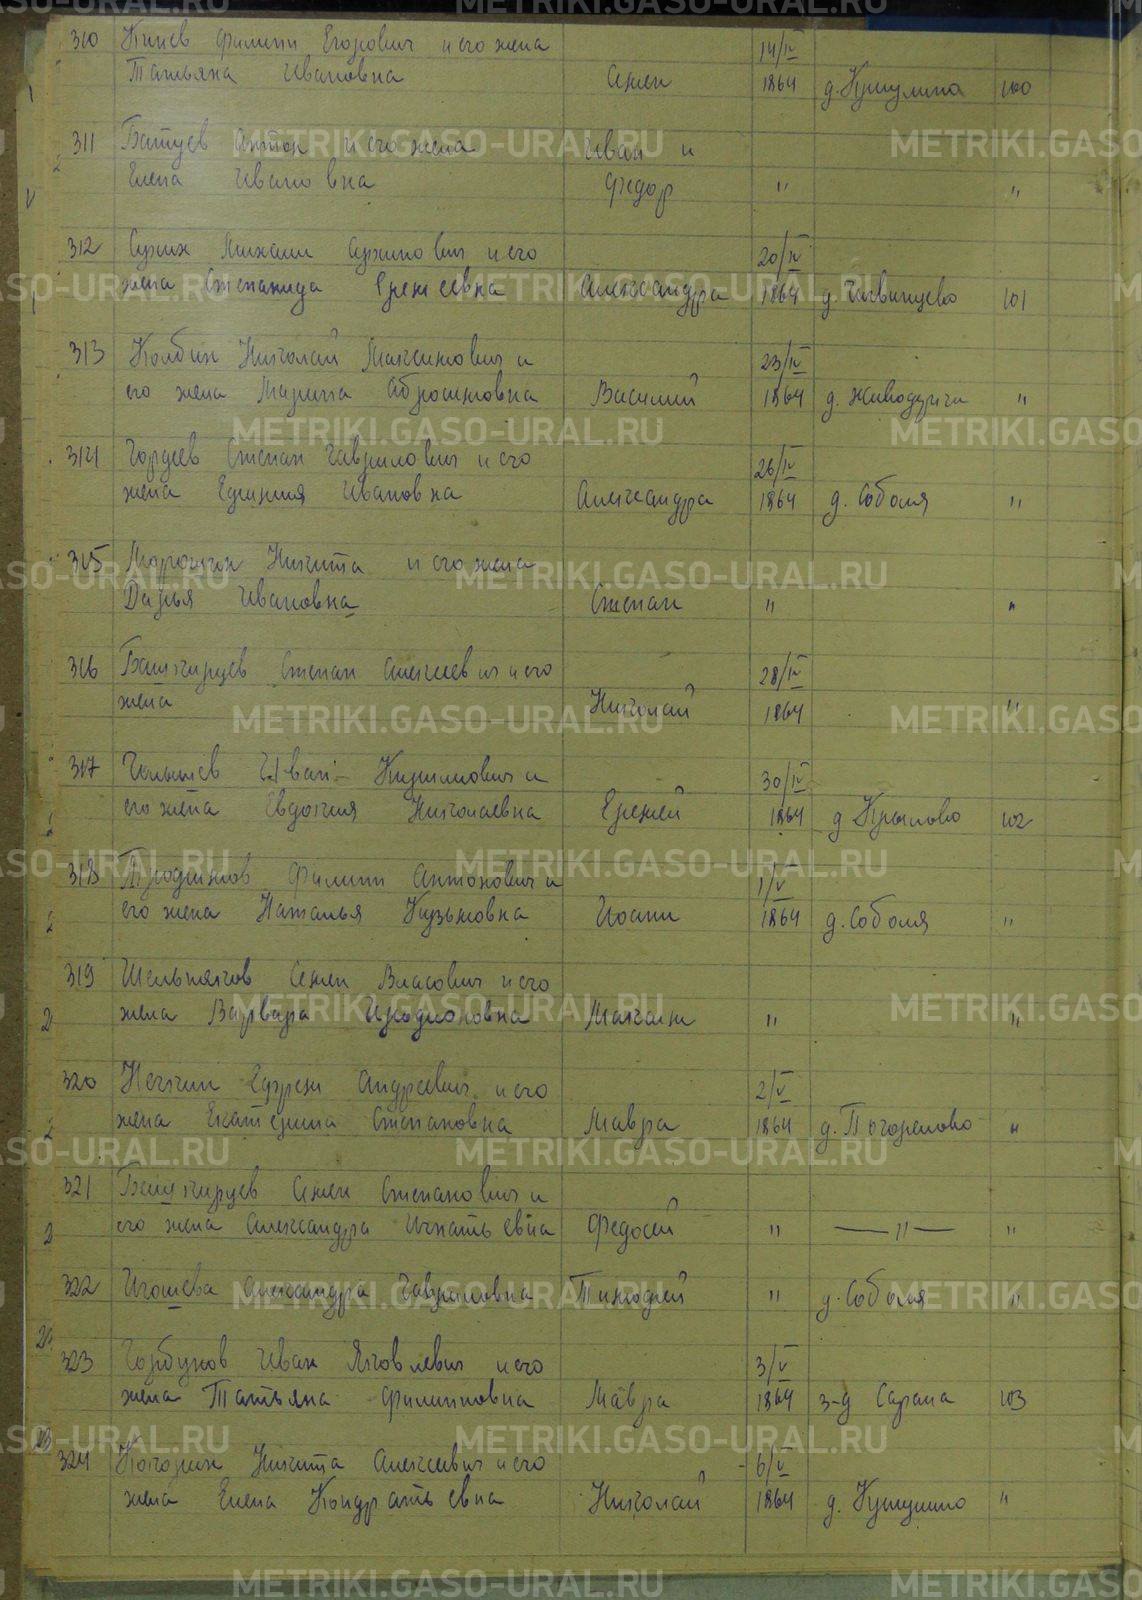 310 Филипп Егорович и его жена 14/IV
Татьяна Ивановна Семен 1864 д. 100
311 Батуев Антон и его жена Иван и
Елена Ивановна Федор " "
312 Сухих Михаил и его 20/IV
жена Степанида Еремеевна Александра 1864 д. Чигвинцево 101
313 Колбин Николай Максимович и 23/IV
его жена Марина Абросимовна Василий 1864 д. "
314 Гордеев Степан Гаврилович и его 26/IV
жена Ефимия Ивановна Александра 1864 д. Соболя "
315 Никита и его жена
Дарья Ивановна Степан " "
316 Башкирцев Степан Алексеевич и его 28/IV
жена Николай 1864 "
317 Иван Кузьмович и 30/IV
его жена Евдокия Николаевна Еремей 1864 д Крылово 102
318 Филипп Антонович и 1/V
его жена Наталья Кузьмовна Иоанн 1864 д. Соболя "
319 Шельпяков Семен Власович и его
жена Варвара Иродионовна Максим " "
320 Ефрем Андреевич и его 2/V
жена Екатерина Степановна Мавра 1864 д. Погорелово "
321 Башкирцев Семен Степанович и
его жена Александра Игнатьевна Федосей " — " — "
322 Игошева Александра Гавриловна Тимофей " д. Соболя "
323 Горбунов Иван Яковлевич и его 3/V
жена Татьяна Филипповна Мавра 1864 з-д Сарана 103
324 Никита Алексеевич и его 6/V
жена Елена Кондратьевна Николай 1864 д. "
METRIKI.GASO-URAL.RU